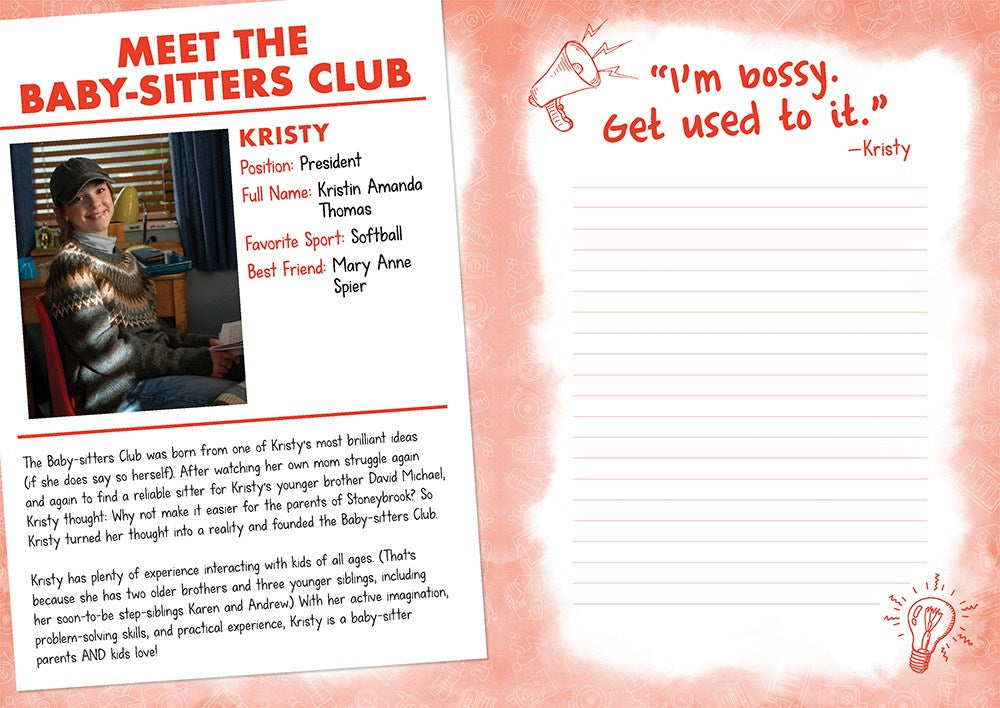 MEET THE
BABY-SITTERS CLUB
KRISTY
Position: President
Full Name: Kristin Amanda
Thomas
Favorite Sport: Softball
Best Friend: Mary Anne
Spier
The Baby-sitters Club was born from one of Kristy's most brilliant ideas
(if she does say so herself). After watching her own mom struggle again
and again to find a reliable sitter for Kristy's younger brother David Michael,
Kristy thought: Why not make it easier for the parents of Stoneybrook? So
Kristy turned her thought into a reality and founded the Baby-sitters Club.
Kristy has plenty of experience interacting with kids of all ages. (That's
because she has two older brothers and three younger siblings, including
her soon-to-be step-siblings Karen and Andrew.) With her active imagination,
problem-solving skills, and practical experience, Kristy is a baby-sitter
parents AND kids love!
“I'm bossy.
Get used to it.”
—Kristy